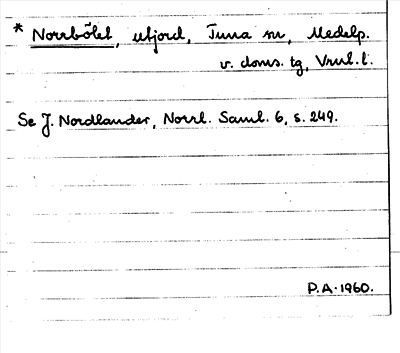 * Norrbölet, utjord, Tuna sn, Medelp.
v. doms. tg, Vrul. l.
Se J. Nordlander, Norrl. Saml. 6, s. 249.
P.A. 1960.